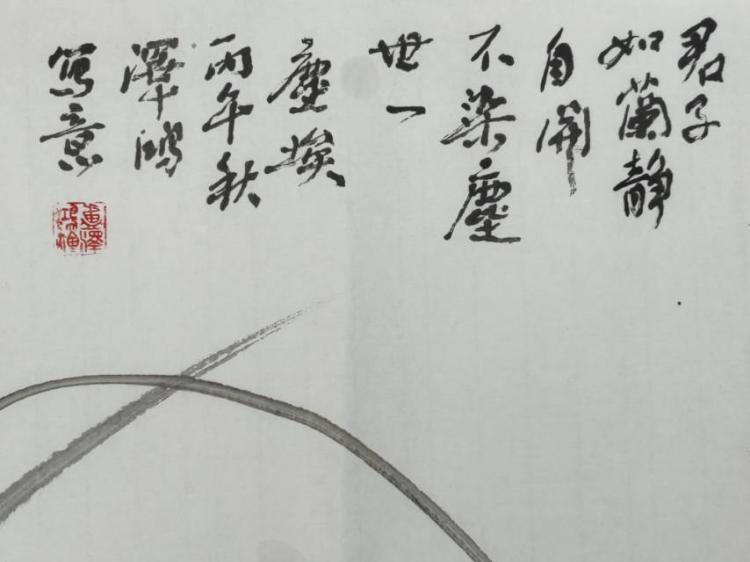 君子
如蘭静
自開
不染塵
世一
塵埃
丙午秋
澤鴻
写意